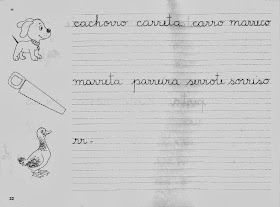 cachorro carreta carro marreco
marreta parreira serrote sorriso
rr.
22